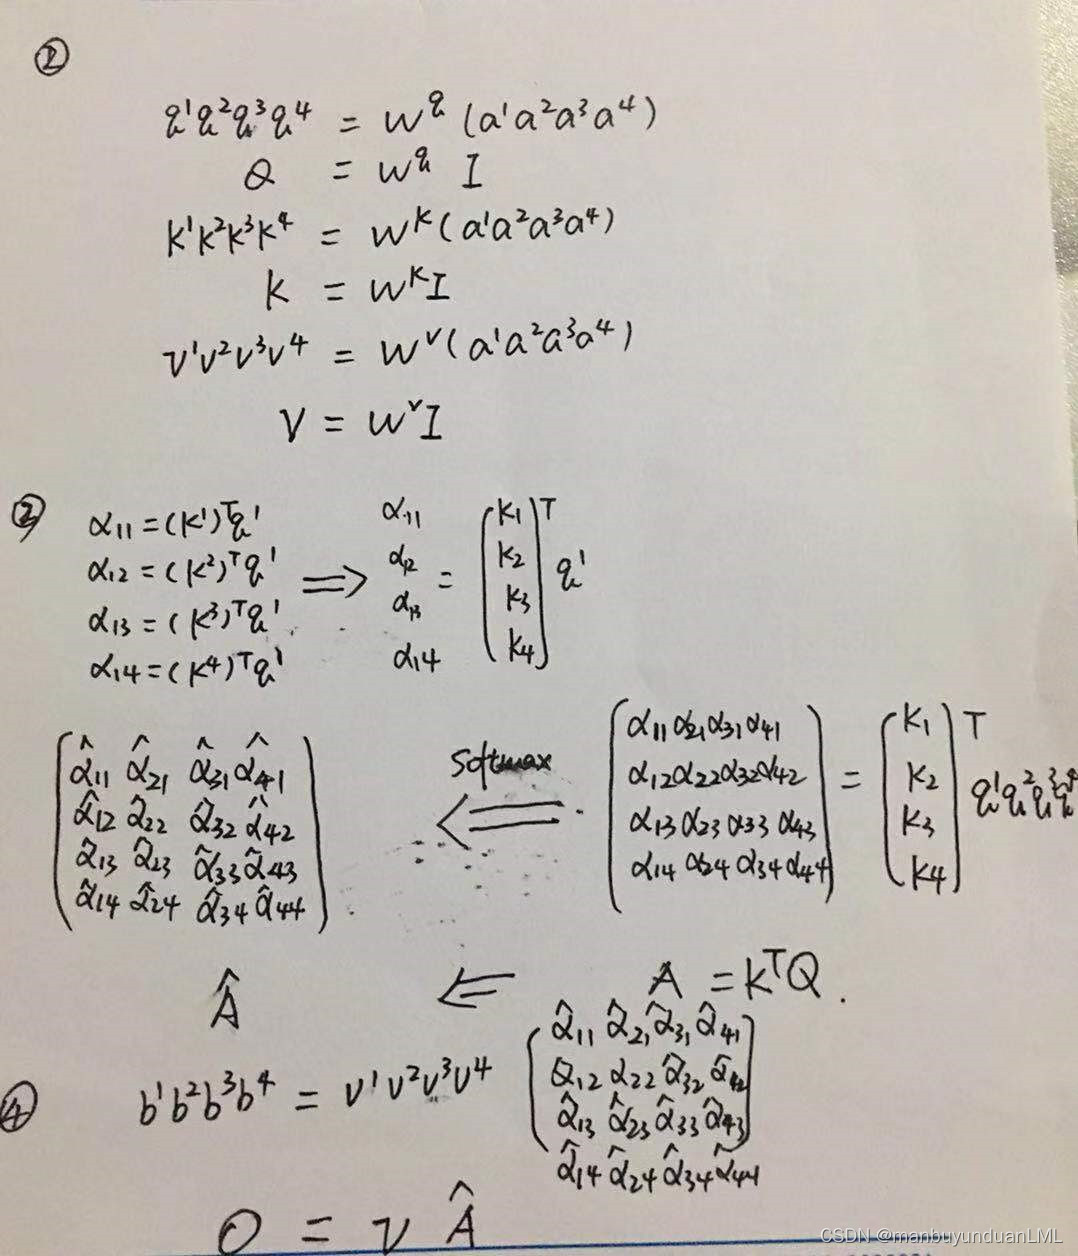 ①
q¹q²q³q⁴ = W^q (a¹a²a³a⁴)
Q = W^q I
k¹k²k³k⁴ = W^k (a¹a²a³a⁴)
k = W^k I
v¹v²v³v⁴ = W^v (a¹a²a³a⁴)
V = W^v I
②
α₁₁ = (k¹)ᵀq¹
α₁₂ = (k²)ᵀq¹
α₁₃ = (k³)ᵀq¹
α₁₄ = (k⁴)ᵀq¹
⇒
α₁₁
α₁₂
α₁₃
α₁₄
=
(k₁
k₂
k₃
k₄)ᵀ q¹
(α̂₁₁ α̂₂₁ α̂₃₁ α̂₄₁
α̂₁₂ α̂₂₂ α̂₃₂ α̂₄₂
α̂₁₃ α̂₂₃ α̂₃₃ α̂₄₃
α̂₁₄ α̂₂₄ α̂₃₄ α̂₄₄)
softmax
⇐
(α₁₁ α₂₁ α₃₁ α₄₁
α₁₂ α₂₂ α₃₂ α₄₂
α₁₃ α₂₃ α₃₃ α₄₃
α₁₄ α₂₄ α₃₄ α₄₄)
=
(k₁
k₂
k₃
k₄)ᵀ q¹q²q³q⁴
Â ⇐ A = kᵀQ.
④
b¹b²b³b⁴ = v¹v²v³v⁴
(α̂₁₁ α̂₂₁ α̂₃₁ α̂₄₁
α̂₁₂ α₂₂ α̂₃₂ α̂₄₂
α̂₁₃ α̂₂₃ α̂₃₃ α̂₄₃
α̂₁₄ α̂₂₄ α̂₃₄ α̂₄₄)
O = V Â
CSDN @manbuyunduanLML